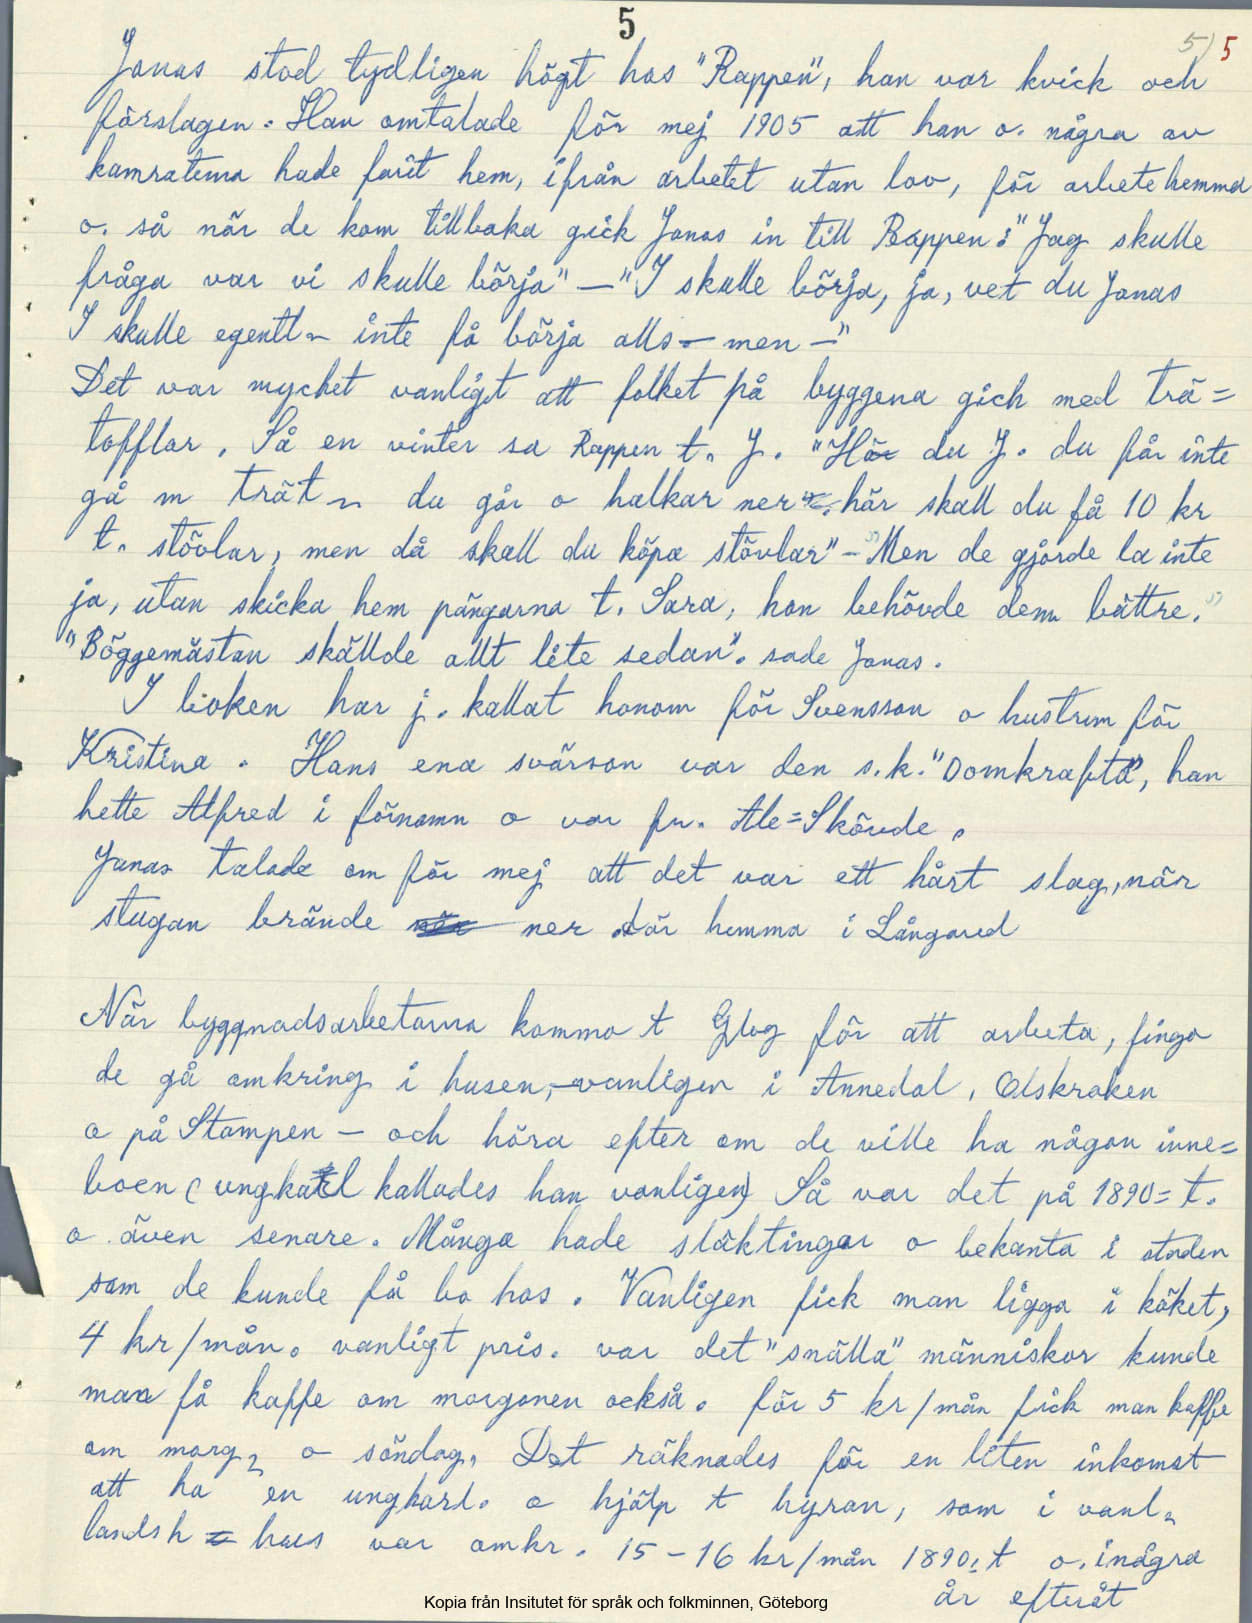 5
5) 5
Jonas stod tydligen högt hos "Rappen", han var kvick och
förslagen. Han omtalade för mej 1905 att han o. några av
kamraterna hade farit hem, ifrån arbetet utan lov, för arbete hemma
o. så när de kom tillbaka gick Jonas in till Rappen: "Jag skulle
fråga var vi skulle börja" — "I skulle börja, ja, vet du Jonas
I skulle egentl. inte få börja alls — men —"
Det var mycket vanligt att folket på byggena gick med trä=
tofflor. Så en vinter sa Rappen t. J. "Hör du J. du får inte
gå m trät. du går o halkar ner. här skall du få 10 kr
t. stövlar, men då skall du köpa stövlar" – "Men de gjorde la inte
ja, utan skicka hem pängarna t. Sara, hon behövde dem bättre."
"Böggemästan skällde allt lite sedan". sade Jonas.
I boken har j. kallat honom för Svensson o hustrun för
Kristina. Hans ena svärson var den s.k. "Domkrafta", han
hette Alfred i förnamn o var fr. Ale=Skövde.
Jonas talade om för mej att det var ett hårt slag, när
stugan brände ner där hemma i Långared
När byggnadsarbetarna kommo t Gbg för att arbeta, fingo
de gå omkring i husen, – vanligen i Annedal, Olskroken
o på Stampen – och höra efter om de ville ha någon inne=
boen (ungkarl kallades han vanligen) Så var det på 1890=t.
o även senare. Många hade släktingar o bekanta i staden
som de kunde få bo hos. Vanligen fick man ligga i köket,
4 kr/mån. vanligt pris. var det "snälla" människor kunde
man få kaffe om morgonen också. för 5 kr/mån fick man kaffe
om morg. o söndag. Det räknades för en liten inkomst
att ha en ungkarl. o hjälp t hyran, som i vanl.
landsh hus var omkr. 15–16 kr/mån 1890:t o. några
år efteråt
Kopia från Insitutet för språk och folkminnen, Göteborg